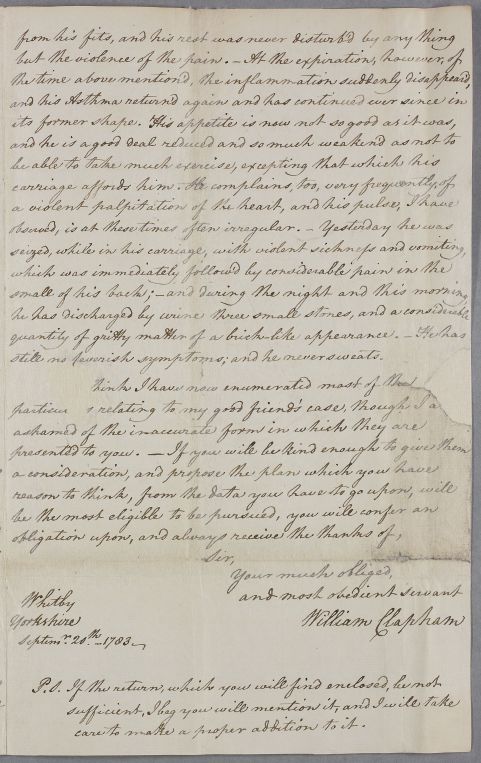 from his fits, and his rest was never disturb'd by any thing
but the violence of the pain. – At the expiration, however, of
the time above mention'd, the inflammation suddenly disappear'd,
and his Asthma return'd again and has continued ever since in
its former shape. His appetite is now not so good as it was,
and he is a good deal reduced and so much weakend as not to
be able to take much exercise, excepting that which his
carriage affords him. He complains, too, very frequently, of
a violent palpitation of the heart, and his pulse, I have
observed, is at these times often irregular. – Yesterday he was
seized, while in his carriage, with violent sickness and vomiting,
which was immediately followed by considerable pain in the
small of his back; – and during the night and this morning
he has discharged by urine three small stones, and a considerable
quantity of gritty matter of a brick-like appearance. – He has
still no feverish symptoms; and he never sweats.
hink I have now enumerated most of the
particu s relating to my good friend's case, though I a
ashamed of the inaccurate form in which they are
presented to you. – If you will be kind enough to give them
a consideration, and propose the plan which you have
reason to think, from the data you have to go upon, will
be the most eligible to be pursued, you will confer an
obligation upon, and always receive the thanks of,
Sir,
Your much obliged,
and most obedient servant
William Clapham
Whitby
Yorkshire
Septemr. 20th. 1783
P.S. If the return, which you will find enclosed, be not
sufficient, I beg you will mention it, and I will take
care to make a proper addition to it.